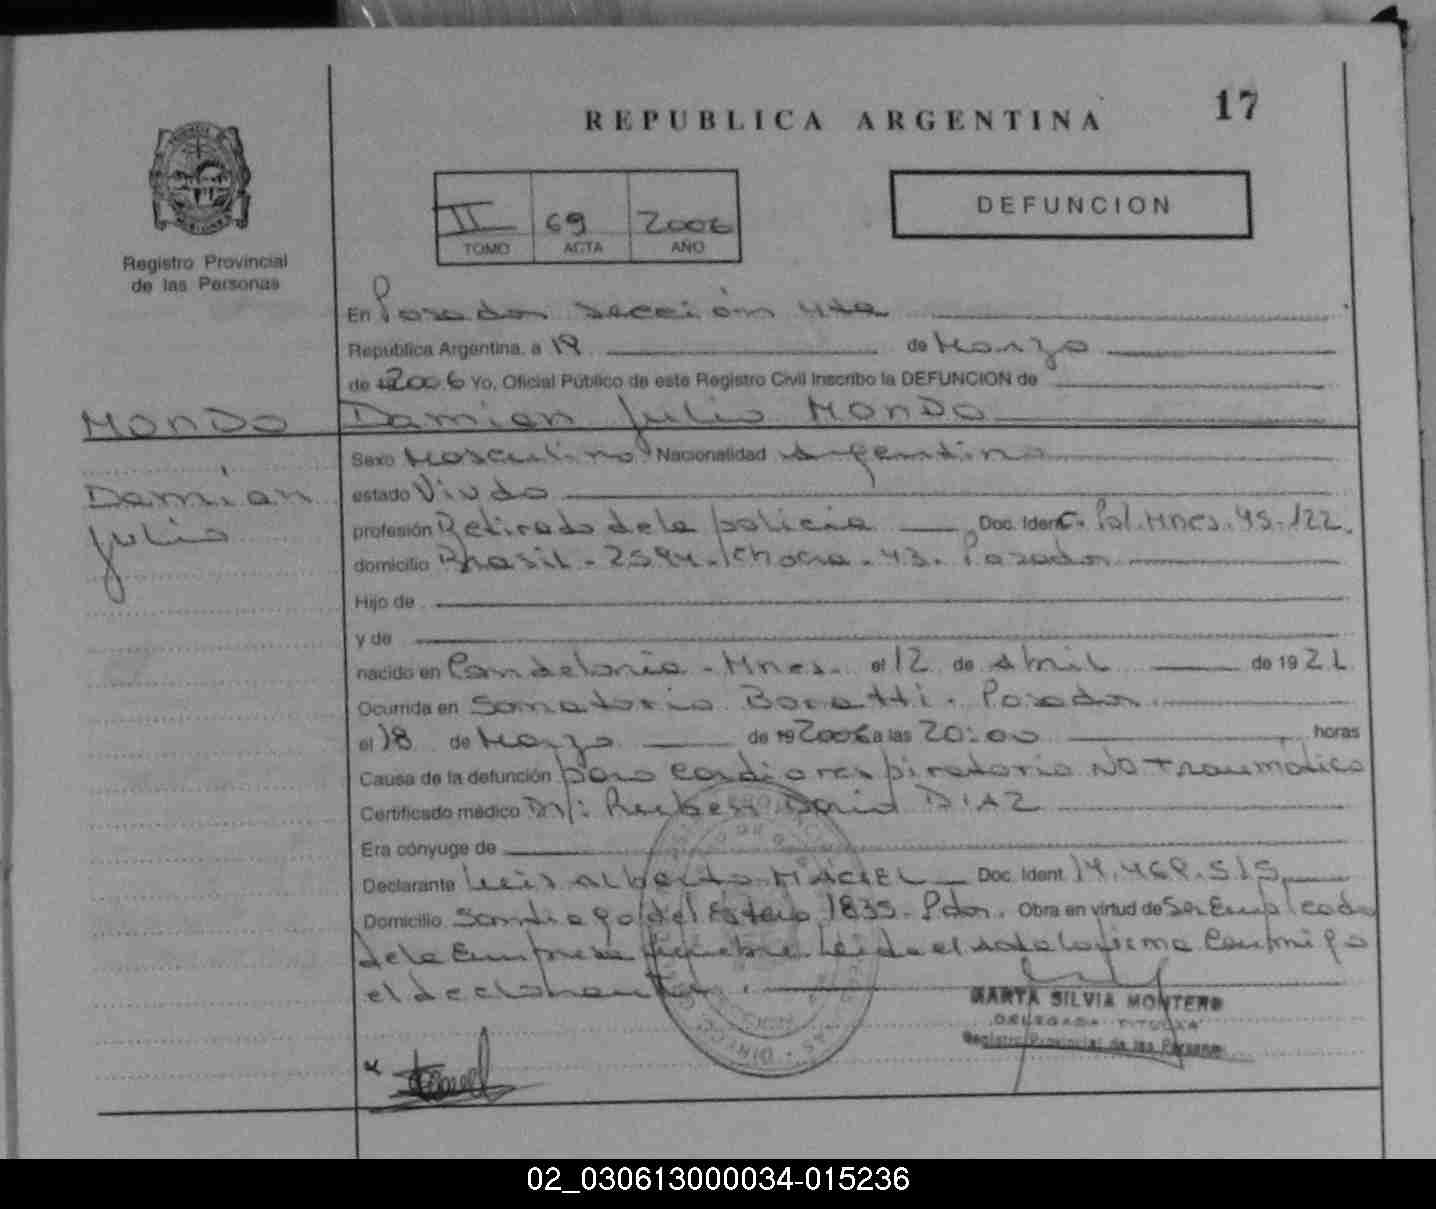 REPUBLICA ARGENTINA
17
II 69 2006
TOMO ACTA AÑO
DEFUNCION
Registro Provincial
de las Personas
En Posadas sección 4ta
Republica Argentina, a 19 de Marzo
de 2006 Yo, Oficial Público de este Registro Civil Inscribo la DEFUNCION de
MONDO
Damian Julio MONDO
Damián
Julio
Sexo Masculino Nacionalidad Argentina
estado Viudo
profesión Retirado de la policia Doc. Ident. C. Pol. Mnes. 45.122.
domicilio Brasil - 2594 - Chacra - 43. Posadas
Hijo de
y de
nacido en Candelaria - Mnes. el 12 de Abril de 19 21
Ocurrida en Sanatorio Boratti. Posadas
el 18 de Marzo de 19 2006 a las 20:00 horas
Causa de la defunción paro cardiorespiratorio NO traumático
Certificado médico Dr: Ruben Dario DIAZ
Era cónyuge de
Declarante Luis Alberto MACIEL Doc. Ident. 14.469.515
Domicilio Santiago del Estero 1835. Pdas. Obra en virtud de Ser Empleado
de la Empresa fúnebre. Leida el acta la firma conmigo
el declarante.
MARTA SILVIA MONTERO
DELEGADA TITULAR
Registro Provincial de las Personas
02_030613000034-015236